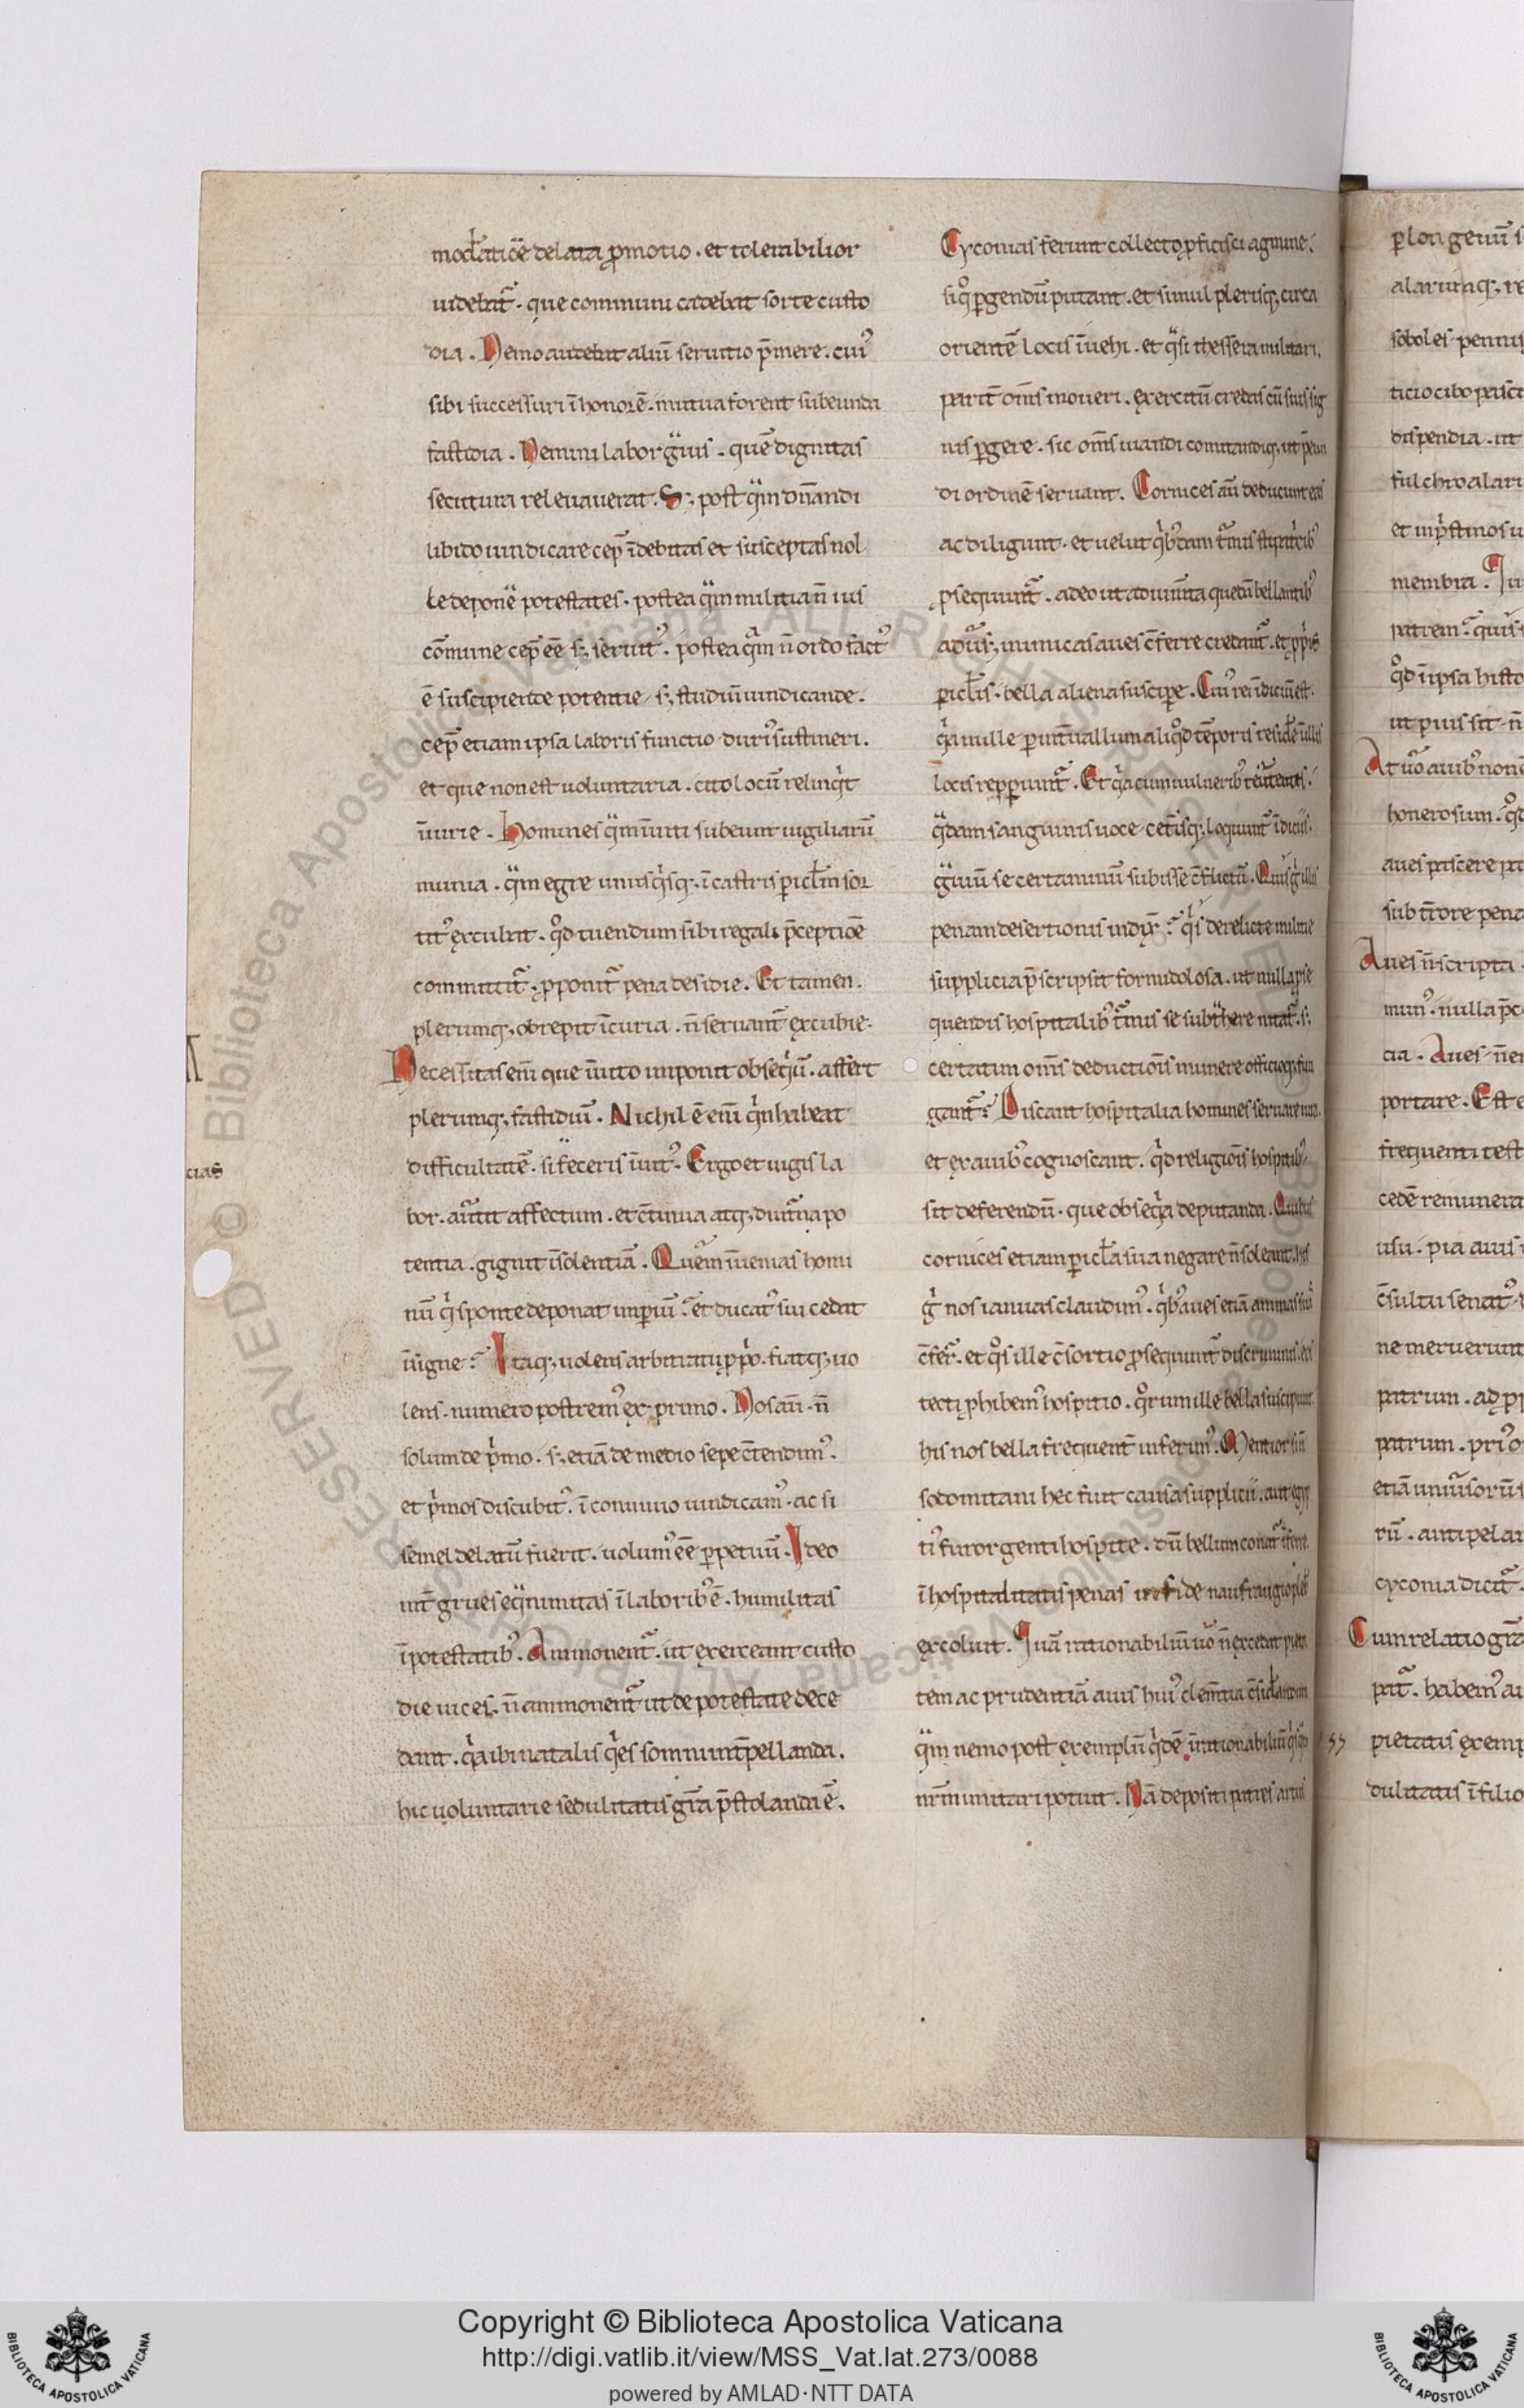 mod̃atiõe delata ꝓmotio . et tolerabilior
uidebat᷑ . que communi cadebat sorte custo
dia . Nemo audebat aliũ seruitio p̃mere . cuiꝰ
sibi successuri ĩ honorẽ . mutua forent subeunda
fastidia . Nemini labor gᷓuis . quẽ dignitas
secutura releuauerat . Sꝫ post qᷓm dñandi
libido uindicare cep̃ ĩdebitas et susceptas nol
le deponẽ potestates . postea qᷓm militia ñ ius
cõmune cep̃ eẽ sꝫ seruitꝰ . postea qᷓm ñ ordo factꝰ
ẽ suscipiende potentie / sꝫ studiũ uindicande .
cep̃ etiam ipsa laboris functio duriꝰ sustineri .
et que non est uoluntaria . cito locũ relinqͥt
ĩiurie . Homines qᷓm ĩuiti subeunt uigiliarũ
munia . qᷓm egre unusqͥsqꝫ . ĩ castris picłm sor
titꝰ excubat . qͦd tuendum sibi regali p̃ceptiõe
committit᷑ . ꝓponit᷑ pena desidie . Et tamen .
plerumqꝫ obrepit ĩcuria . ñ seruant᷑ excubie .
Necessitas eni᷑ que ĩuito imponit obseqͥũ . affert
plerumqꝫ fastidiũ . Nichil ẽ eni᷑ qͥn habeat
difficultatẽ . si feceris ĩuitꝰ . Ergo et iugis la
bor . aũtit affectum . et c̃tinua atqꝫ diut᷑na po
tentia . gignit ĩsolentiã . Quẽm ĩuenias homi
nũ qͥ sponte deponat imꝑiũ . et ducatꝰ sui cedat
ĩsigne . Itaqꝫ uolens arbitratu ꝓpͥo . fiatqꝫ uo
lens . numero postremꝰ ex primo . Nos aũ . ñ
solum de pͥmo . sꝫ etiã de medio sepe c̃tendimꝰ .
et pͥmos discubitꝰ . ĩ conuiuio uindicamꝰ . ac si
semel delatũ fuerit . uolumꝰ eẽ ꝑpetuũ . Ideo
int̃ grues eqᷓnimitas ĩ laboribꝰ ẽ . humilitas
ĩ potestatibꝰ . Ammonent᷑ . ut exerceant custo
die uices . ñ ammonent᷑ ut de potestate dece
dant . qͥa ibi natalis qͥes somni int̃pellanda .
hic uoluntarie sedulitatis gr̃a p̃stolanda ẽ .
Cyconias ferunt collecto ꝓficisci agmine .
siqͦ ꝑgendũ putant . et simul plerisqꝫ circa
orientẽ locis ĩuehi . et qᷓsi thessera militari .
parit̃ om̃s moueri . exercitũ credas cũ suis sig
nis ꝑgere . sic om̃s
di ordinẽ seruant . Cornices aũ deducunt eas
ac diligunt . et uelut qͥbꝰdam
ꝓsequunt᷑ . adeo ut
aduꝰsꝫ inimicas aues c̃ferre credant᷑ . et ꝓpͥis
picłis . bella aliena suscipe . Cuiꝰ rei ĩdiciũ est .
qͥa nulle ꝑ int̃uallum aliqͦd tẽporis
locis repꝑiunt᷑ . Et qͥa cum uulneribꝰ reũtentes .
qᷓdam sanguinis uoce . cet̃isqꝫ loquunt᷑ ĩdiciis .
gᷓuiũ se certaminũ subisse c̃flictũ . Quis gͥ illis
penam desertionis indix᷑ . qͥs derelicte militie
supplicia p̃scripsit formidolosa . ut nulla
quendis hospitalibꝰ t᷑minis se subt᷑here
certatim om̃s deductiõis munere
gant᷑ . Discant hospitalia homines seruare iura .
et ex auibꝰ cognoscant . qͥd religiõis hospitibꝰ
sit deferendũ . que obseqͥa deputanda . Quibus
cornices etiam picła sua negare ñ soleant . his
gͥ nos ianuas claudimꝰ . qͥbꝰ aues etiã animas suas
c̃fer᷑ . et qͦs ille c̃sortio ꝓsequunt᷑ discriminis .
tecti ꝓhibemꝰ hospitio . qͦrum ille bella suscipiunt .
his nos bella frequent̃ inferimꝰ . Mentior si ñ
sodomitani hec fuit causa supplicii . aut egyp
tiꝰ furor genti hospite . dũ bellum conat᷑
ĩhospitalitatis penas infide naufragio
excoluit . Iuã rationabiliũ uͦo ñ excedat pieta
tem ac prudentiã auis huiꝰ clem̃tia
qᷓm nemo post exemplũ qͥdẽ ĩrationabiliũ
nr̃m imitari potuit . Nã depositi patres artus
cias
plongeuũ
alarumqꝫ
soboles pennis
ticio cibo
dispendia . ut
fulchro alari
et in pͥstinos
membra .
patrem . quis
qͦd ĩ ipsa histo
ut puis sit . ñ
At uͦo auibꝰ non
honerosum . qͦd
aues pascere
sub t̃rore pena
Aues ñ scripta .
munꝰ . nulla
cia . Aues ñ
portare . Est
frequenti test
cedẽ remunera
usu . pia auis
c̃sultu senatꝰ
ne meruerunt
patrum . ad
patrum . priꝰ
etiã uniuꝰsorũ
rũ . antipelar
cyconia dicit᷑ .
Cum relatio gr̃a
pat᷑ . habemꝰ
pietatis exemp
dulitatis ĩ filio
Copyright © Biblioteca Apostolica Vaticana
http://digi.vatlib.it/view/MSS_Vat.lat.273/0088
powered by AMLAD·NTT DATA